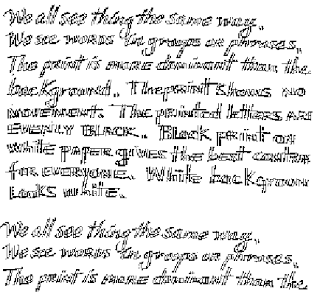 We all see thing the same way.
We see words in groups or phrases.
The print is more dominant than the
background. The print shows no
movement. The printed letters are
evenly black. Black print on
white paper gives the best contra
for everyone. White backgroun
looks white.
We all see thing the same way.
We see words in groups or phrases.
The print is more dominant than the